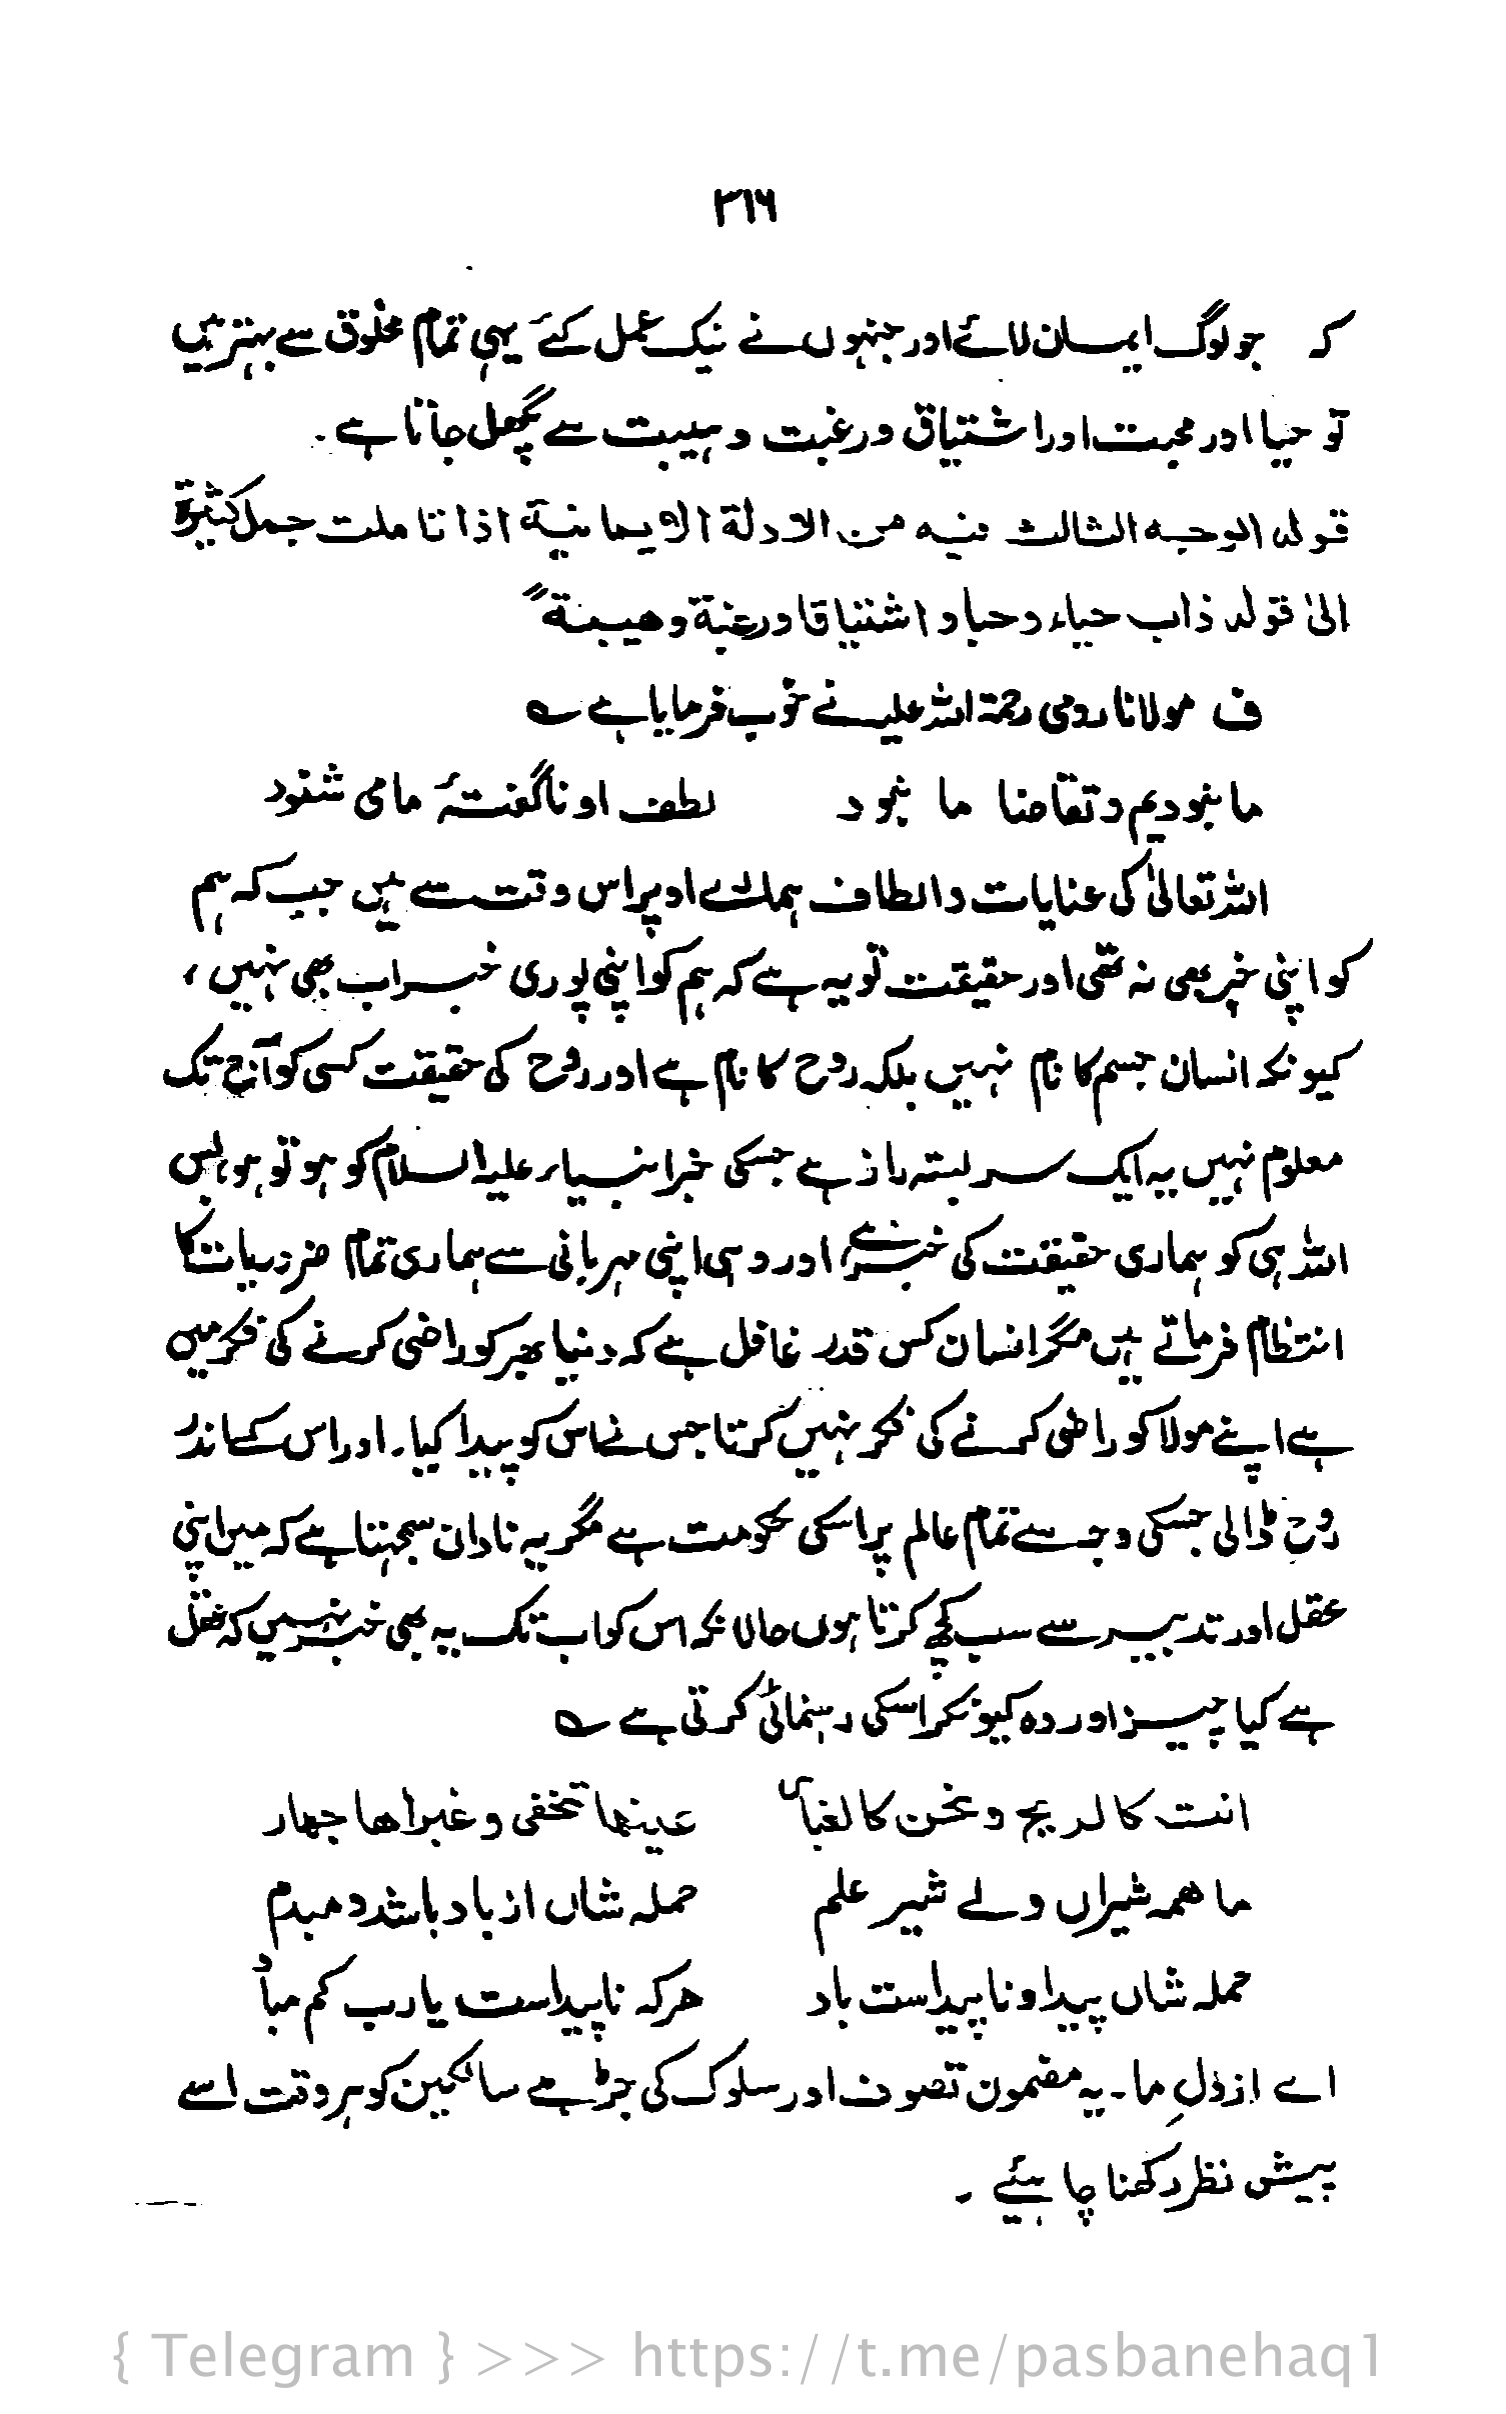 ۳۱۶
کہ جو لوگ ایمان لائے اور جنہوں نے نیک عمل کئے یہی تمام مخلوق سے بہتر ہیں
تو حیا اور محبت اور اشتیاق ورغبت وہیبت سے پگھل جاتا ہے۔
قولہ الوجہ الثالث فیہ من الادلۃ الایمانیۃ اذا تاملت جمل کثیرۃ
الیٰ قولہ ذاب حیاء وحبا واشتیاقا ورغبۃ وھیبۃ"
ف مولانا رومی رحمۃ اللہ علیہ نے خوب فرمایا ہے ؎
ما نبودیم و تقاضا ما نبود لطف او ناگفتۂ ما می شنود
اللہ تعالیٰ کی عنایات والطاف ہمارے اوپر اس وقت سے ہیں جب کہ ہم
کو اپنی خبر بھی نہ تھی اور حقیقت تو یہ ہے کہ ہم کو اپنی پوری خبر اب بھی نہیں،
کیونکہ انسان جسم کا نام نہیں بلکہ روح کا نام ہے اور روح کی حقیقت کسی کو آج تک
معلوم نہیں یہ ایک سر بستہ راز ہے جسکی خبر انبیاء علیہ السلام کو ہو تو ہو، بس
اللہ ہی کو ہماری حقیقت کی خبر ہے اور وہی اپنی مہربانی سے ہماری تمام ضروریات کا
انتظام فرماتے ہیں مگر انسان کس قدر غافل ہے کہ دنیا بھر کو راضی کرنے کی فکر میں
ہے اپنے مولا کو راضی کرنے کی فکر نہیں کرتا جس نے اس کو پیدا کیا۔ اور اس کے اندر
روح ڈالی جسکی وجہ سے تمام عالم پر اسکی حکومت ہے مگر یہ نادان سمجہتا ہے کہ میں اپنی
عقل اور تدبیر سے سب کچھ کرتا ہوں حالانکہ اس کو اب تک یہ بھی خبر نہیں کہ عقل
ہے کیا چیز اور وہ کیونکر اسکی رہنمائی کرتی ہے ؎
انت کالریح ونحن کالغبار عینھا تخفی وغبراھا جھار
ما ھمہ شیراں ولے شیر علم حملہ شاں از باد باشد دمبدم
حملہ شاں پیدا و ناپیداست باد ھرکہ ناپیداست یارب کم مباد
اے از دلِ ما۔ یہ مضمون تصوف اور سلوک کی جڑ ہے سالکین کو ہر وقت اسے
پیش نظر رکھنا چاہیئے۔
{ Telegram } >>> https://t.me/pasbanehaq1